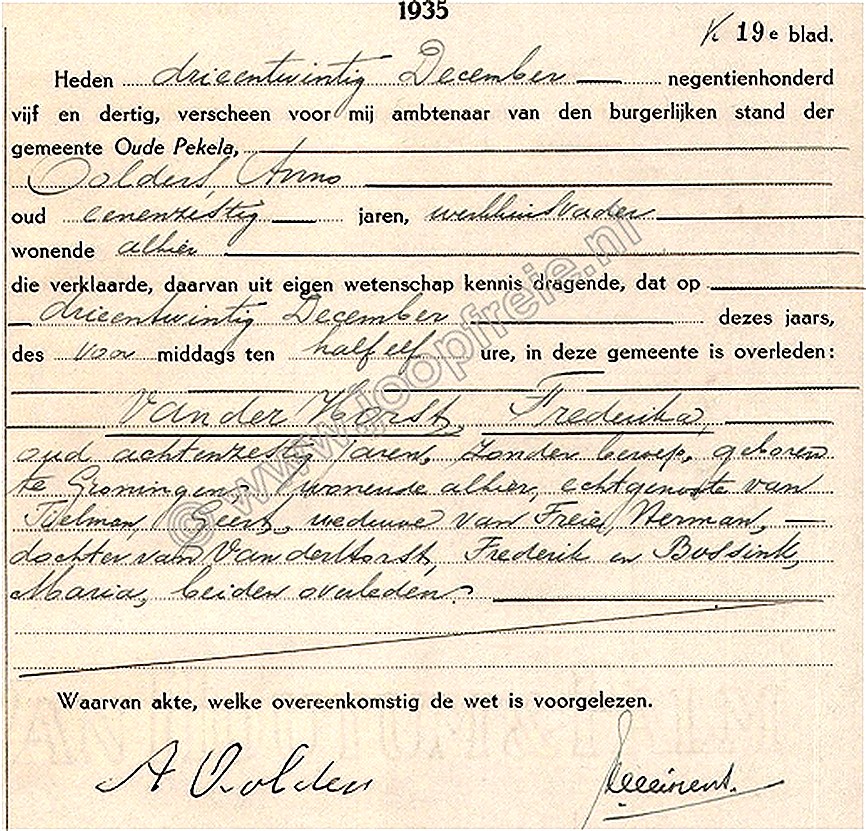 1935
K 19e blad.
Heden drieentwintig December negentienhonderd
vijf en dertig, verscheen voor mij ambtenaar van den burgerlijken stand der
gemeente Oude Pekela,
Oolders, Anno
oud eenenzestig jaren, werkhuisvader
wonende alhier
die verklaarde, daarvan uit eigen wetenschap kennis dragende, dat op
drieentwintig December dezes jaars,
des voor middags ten half elf ure, in deze gemeente is overleden:
Van der Horst, Frederika,
oud achtenzestig jaren, zonder beroep, geboren
te Groningen, wonende alhier, echtgenoote van
Tuelman, Geert, weduwe van Freie, Herman,
dochter van Van der Horst, Frederik en Bossink,
Maria, beiden overleden.
Waarvan akte, welke overeenkomstig de wet is voorgelezen.
A Oolders
© www.loopfreie.nl